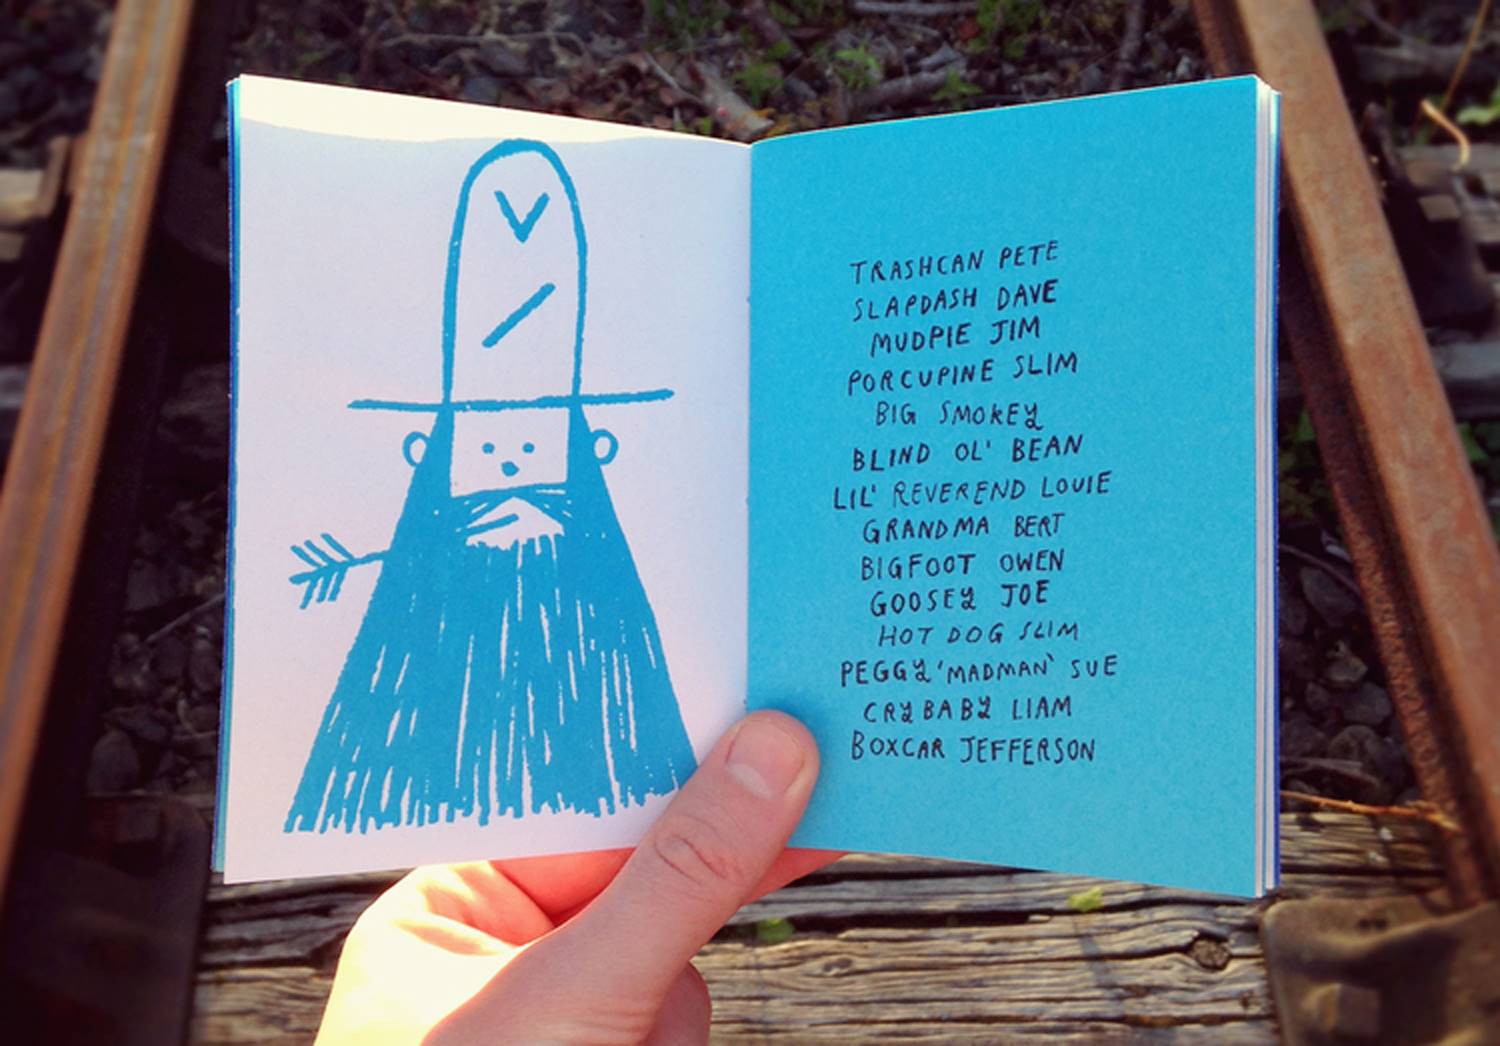 TRASHCAN PETE
SLAPDASH DAVE
MUDPIE JIM
PORCUPINE SLIM
BIG SMOKEY
BLIND OL' BEAN
LIL' REVEREND LOUIE
GRANDMA BERT
BIGFOOT OWEN
GOOSEY JOE
HOT DOG SLIM
PEGGY 'MADMAN' SUE
CRYBABY LIAM
BOXCAR JEFFERSON